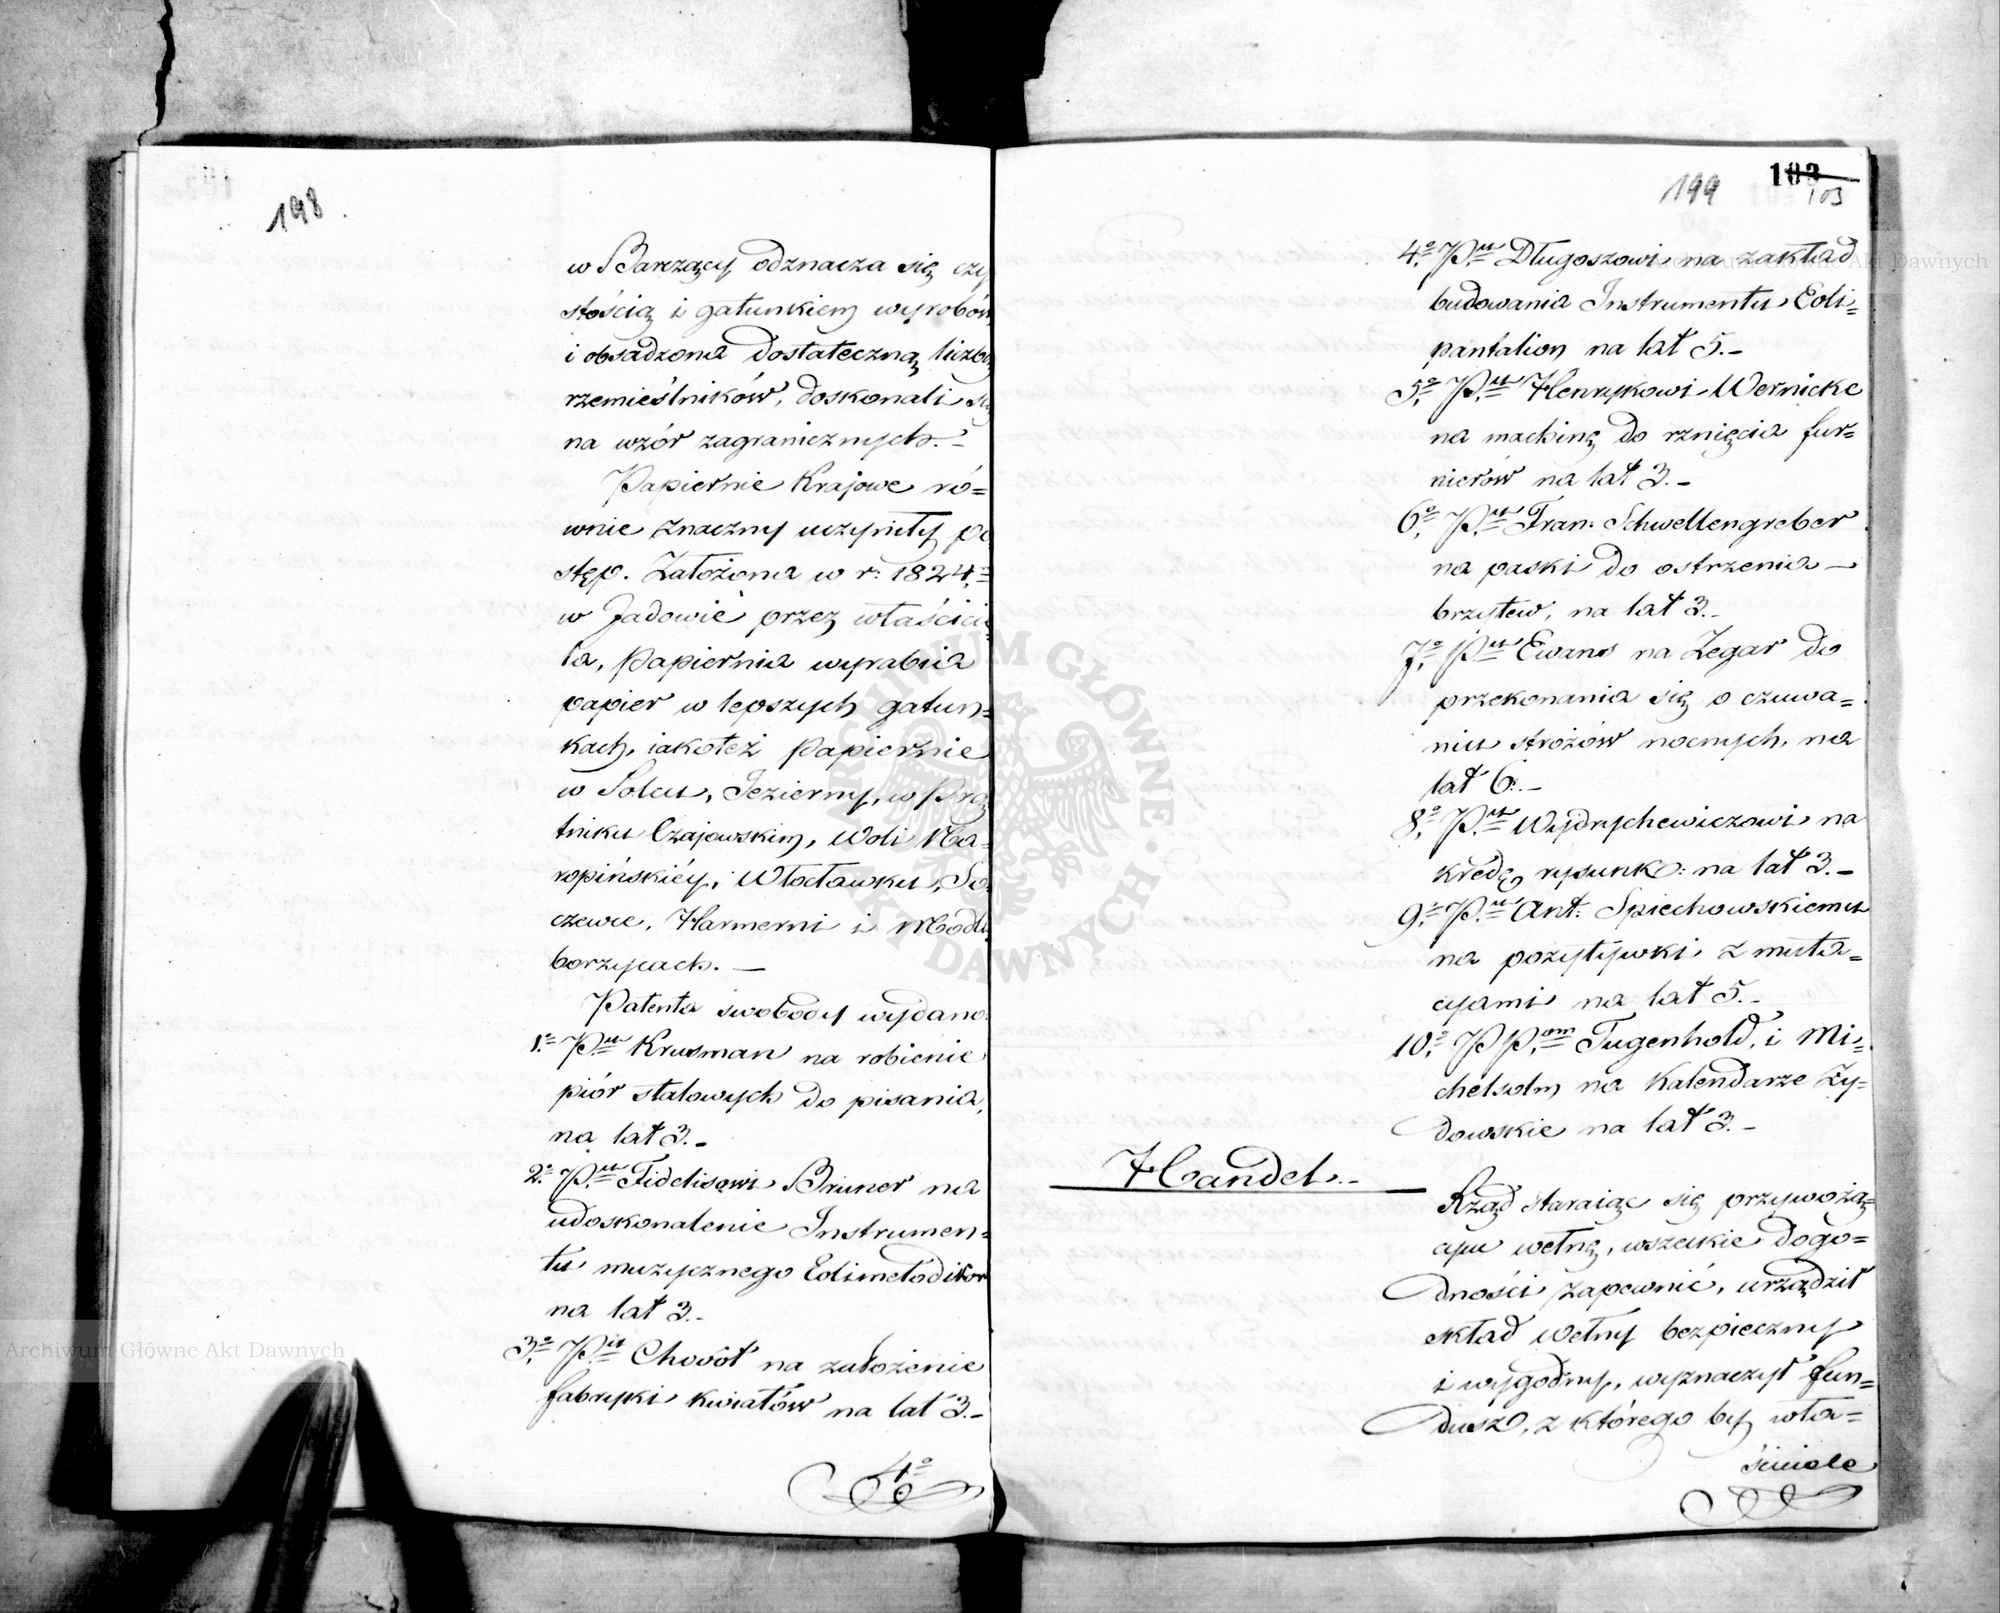 198
w Barczący odznacza się czy
stością i gatunkiem wyrobów
i obsadzona dostateczną liczbą
rzemieślników, doskonali się
na wzór zagranicznych.–
Papiernie Krajowe ró=
wnie znaczny uczyniły po
stęp. Założona w r: 1824.
w Jadowie przez właścicie
la, papiernia wyrabia
papier w lepszych gatun=
kach, iakoteż papiernie
w Solcu, Jezierny, w Prą
tniku Czajowskim, Woli Ma-
ropińskiéy, Włocławku, So
czewce, Harmerni i Modli
borzycach. —
Patenta swobody wydano.
1.° P.u Krusman na robienie
piór stalowych do pisania,
na lat 3.–
2.° P.u Fidelisowi Bruner na
udoskonalenie Instrumen=
tu muzycznego Eolimelodikon
na lat 3.–
3.° P.u Chovôt na założenie
fabryki kwiatów na lat 3.–
4°
199
103
103
4.° P.u Długoszowi na zakład
budowania Instrumentu Eoli=
pantalion na lat 5.–
5.° P.u Henrykowi Wernicke
na machinę do rznięcia fur=
nierów na lat 3.–
6.° P.u Fran: Schwellengreber
na paski do ostrzenia —
brzytew, na lat 3.–
7.° P.u Ewans na Zegar do
przekonania się o czuwa=
niu strożów nocnych, na
lat 6.–
8.° P.u Wydrychewiczowi na
krédę rysunk: na lat 3.–
9.° P.u Ant: Spiechowskiemu
na pozytywki z muta=
cyami na lat 5.–
10.° PP.om Tugenhold, i Mi=
chelsohn na Kalendarze Ży=
dowskie na lat 3.–
Handel.–
Rząd staraiąc się przywożą=
cym wełnę, wszelkie dogo=
dności zapewnić, urządził
skład wełny bezpieczny
i wygodny, wyznaczył fun=
dusz, z którego by wła=
ściciele
ARCHIWUM GŁÓWNE AKT DAWNYCH
Archiwum Główne Akt Dawnych
Archiwum Główne Akt Dawnych